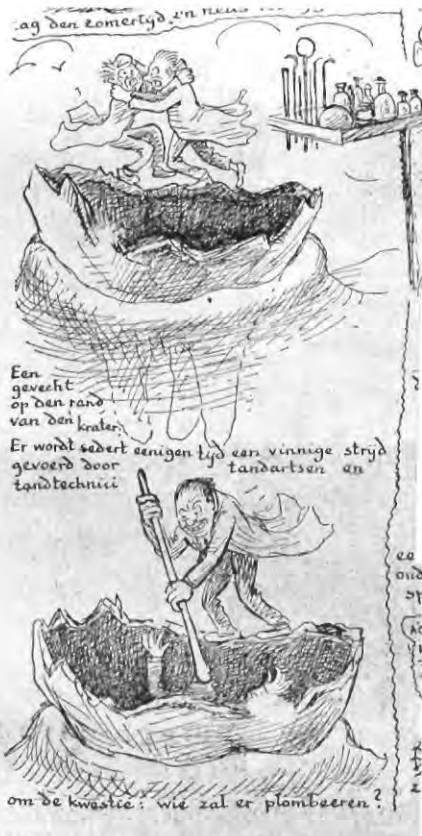 ag den zomertyd, en
Een
gevecht
op den rand
van den krater.
Er wordt sedert eenigen tyd een vinnige stryd
gevoerd door tandartsen en
tandtechnici
om de kwestie: wie zal er plombeeren?
ee
oud
sp